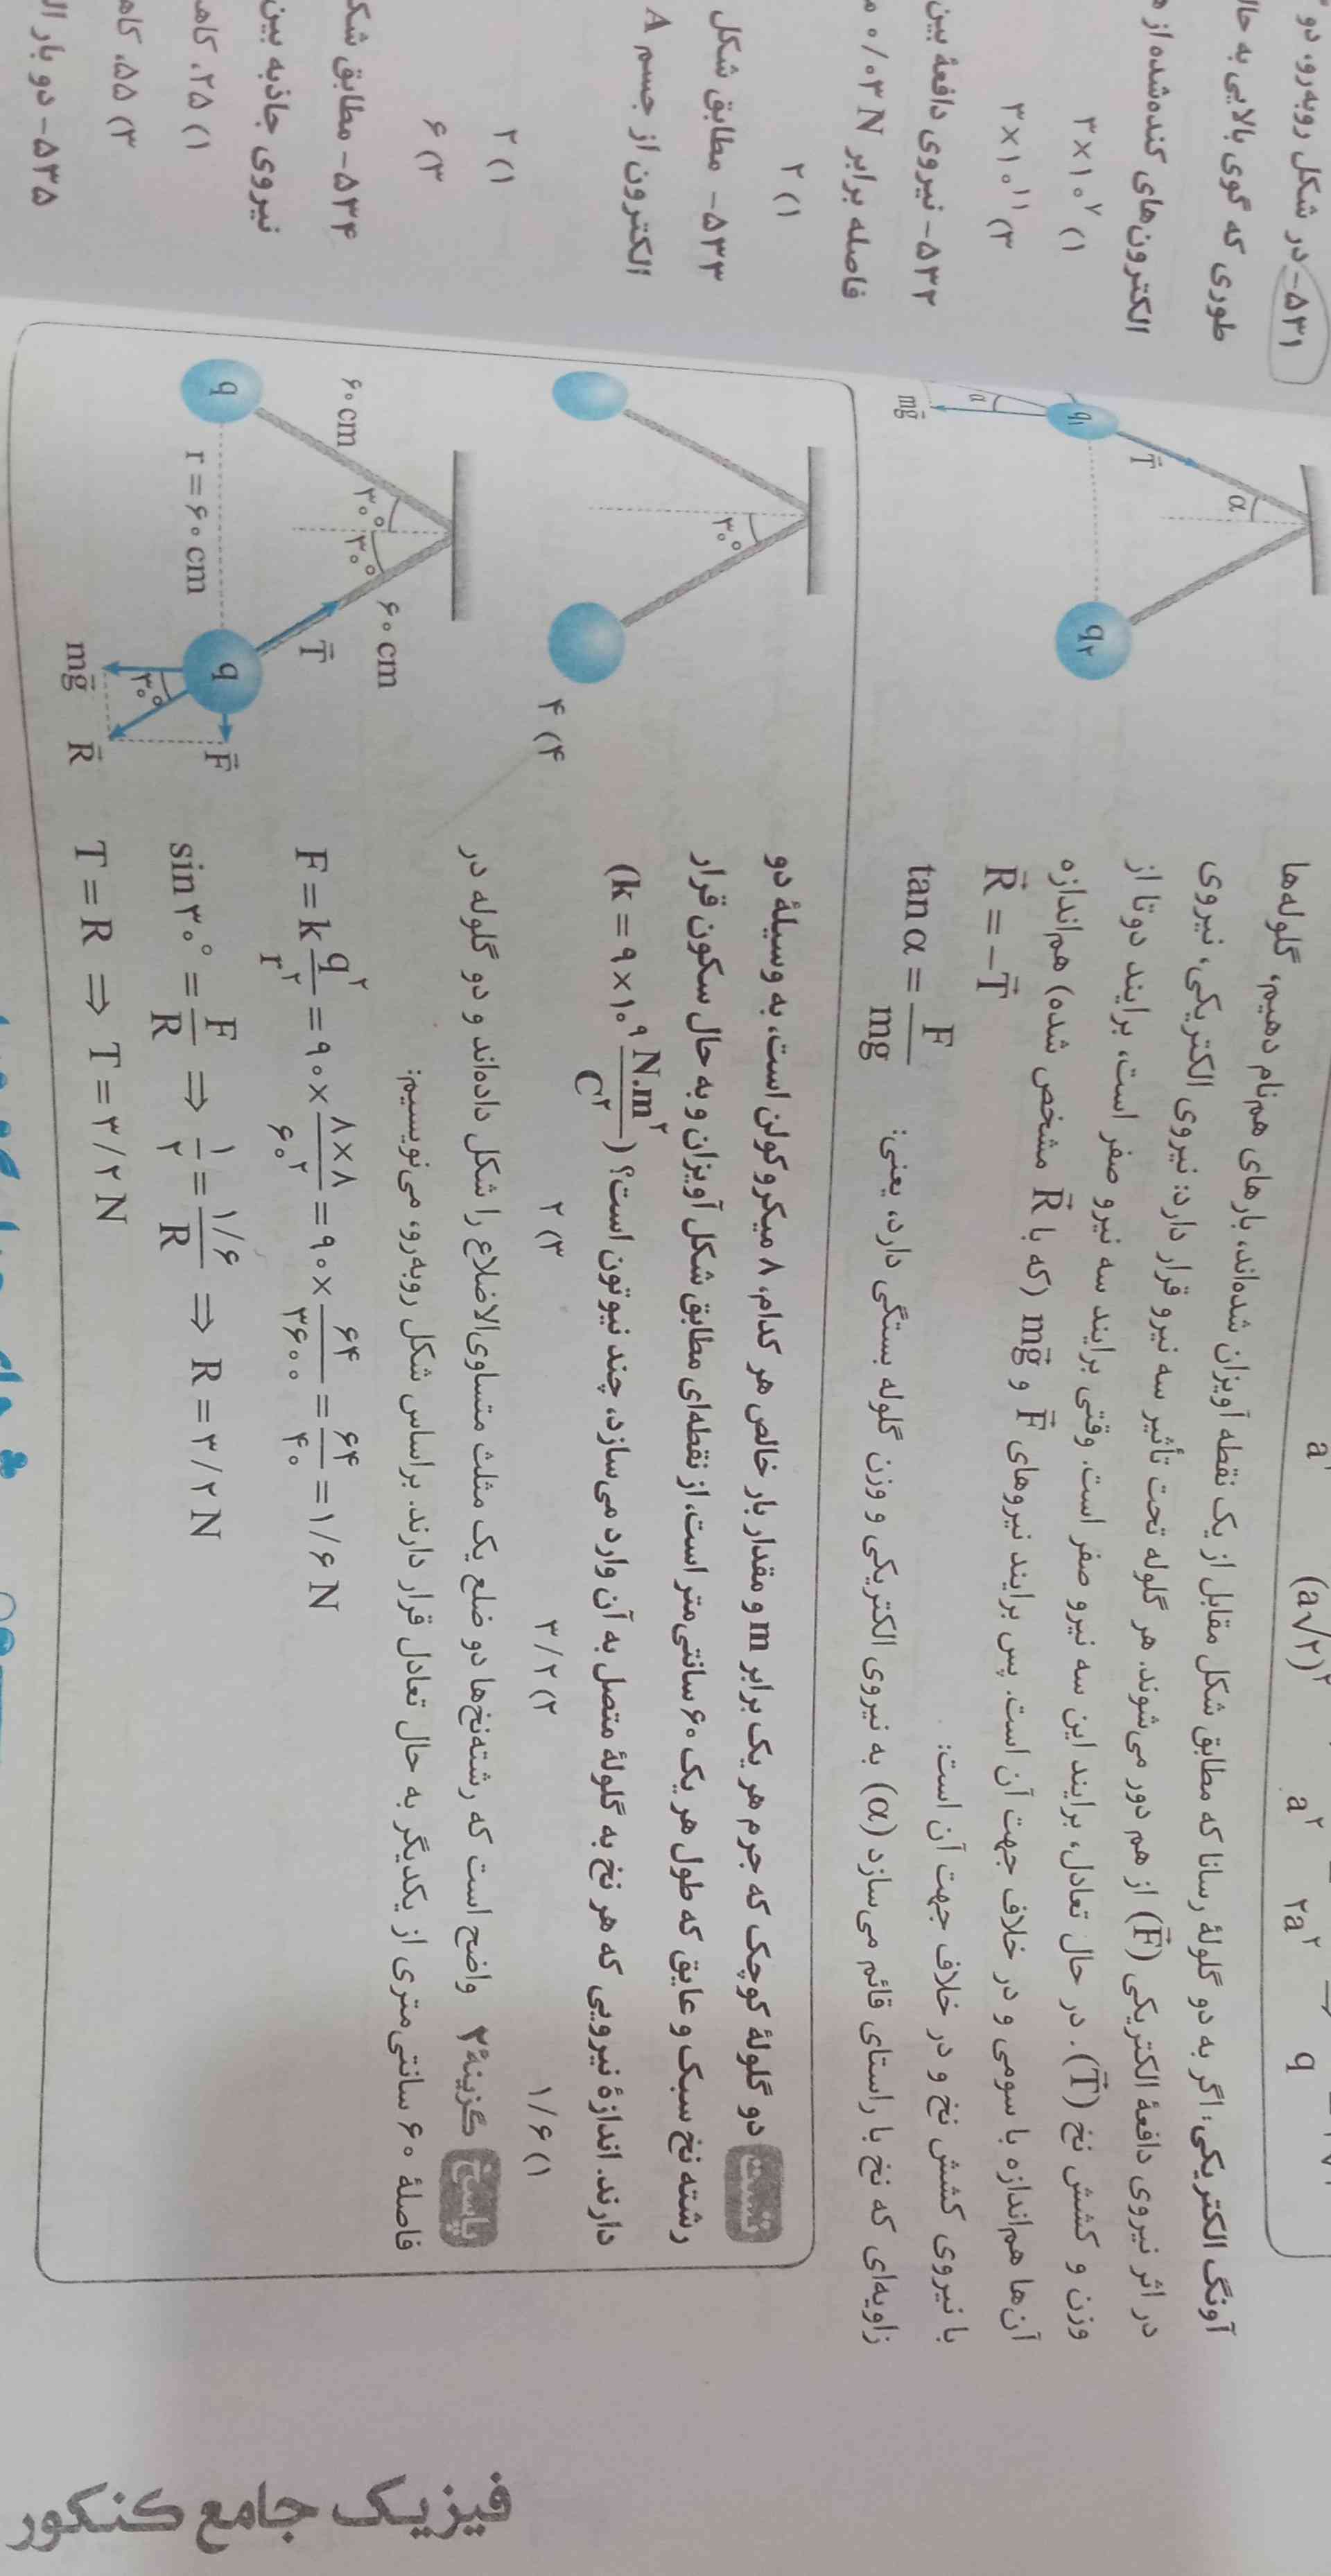 a²
(a√۲)²
a²
۲a²
q
آونگ الکتریکی: اگر به دو گلولهٔ رسانا که مطابق شکل مقابل از یک نقطه آویزان شده‌اند، بارهای هم‌نام دهیم، گلوله‌ها
در اثر نیروی دافعهٔ الکتریکی (F) از هم دور می‌شوند. هر گلوله تحت تأثیر سه نیرو قرار دارد: نیروی الکتریکی، نیروی
وزن و کشش نخ (T). در حال تعادل، برایند این سه نیرو صفر است. وقتی برایند سه نیرو صفر است، برایند دوتا از
آن‌ها هم‌اندازه با سومی و در خلاف جهت آن است. پس برایند نیروهای F و mg (که با R مشخص شده) هم‌اندازه
با نیروی کشش نخ و در خلاف جهت آن است:
R = −T
زاویه‌ای که نخ با راستای قائم می‌سازد (α) به نیروی الکتریکی و وزن گلوله بستگی دارد، یعنی:
tan α = F/mg
α
T
q₁
q₂
α
mg
تست دو گلولهٔ کوچک که جرم هر یک برابر m و مقدار بار خالص هر کدام، ۸ میکروکولن است، به وسیلهٔ دو
رشته نخ سبک و عایق که طول هر یک ۶۰ سانتی‌متر است، از نقطه‌ای مطابق شکل آویزان و به حال سکون قرار
دارند. اندازهٔ نیرویی که هر نخ به گلولهٔ متصل به آن وارد می‌سازد، چند نیوتون است؟ (k = ۹×۱۰⁹ N.m²/C²)
۱) ۱/۶
۲) ۳/۲
۳) ۲
۴) ۴
۳۰°
پاسخ گزینهٔ ۲ واضح است که رشته‌نخ‌ها دو ضلع یک مثلث متساوی‌الاضلاع را شکل داده‌اند و دو گلوله در
فاصلهٔ ۶۰ سانتی‌متری از یکدیگر به حال تعادل قرار دارند. براساس شکل روبه‌رو، می‌نویسیم:
F = k q²/r² = ۹۰ × ۸×۸/۶۰² = ۹۰ × ۶۴/۳۶۰۰ = ۶۴/۴۰ = ۱/۶ N
sin ۳۰° = F/R ⇒ ۱/۲ = ۱/۶/R ⇒ R = ۳/۲ N
T = R ⇒ T = ۳/۲ N
۶۰ cm
۳۰°
۳۰°
۶۰ cm
T
q
r = ۶۰ cm
q
F
۳۰°
mg
R
۵۳۱- در شکل روبه‌رو، دو
طوری که گوی بالایی به حال
الکترون‌های کنده‌شده از
۱) ۳×۱۰⁷
۳) ۳×۱۰¹¹
۵۳۲- نیروی دافعهٔ بین
فاصله برابر ۰/۰۳ N
۱) ۲
۵۳۳- مطابق شکل
الکترون از جسم A
۱) ۲
۳) ۶
۵۳۴- مطابق
نیروی جاذبه بین
۱) ۲۵،
۳) ۵۵،
۵۳۵- دو بار
فیزیک جامع کنکور